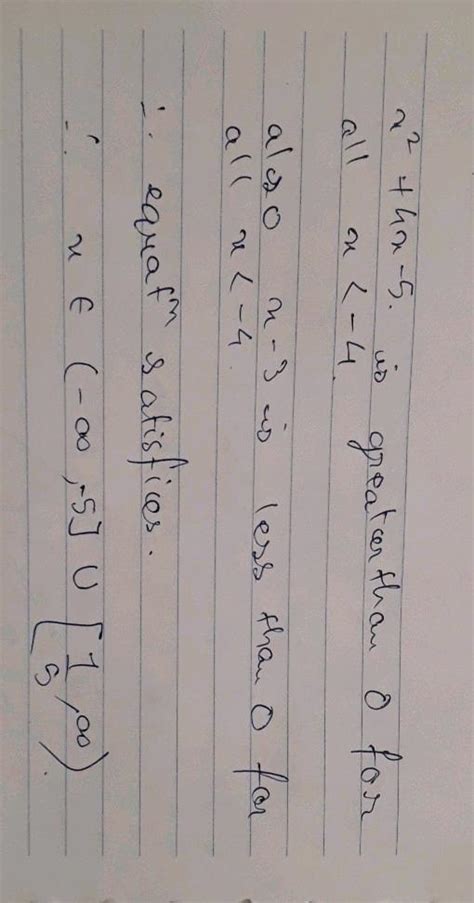 x² + 4x - 5. is greater than 0 for
all x < -4
also x - 3 is less than 0 for
all x < -4
∴ equatⁿ satisfies.
∴ x ∈ (-∞, -5] ∪ [1/5, ∞)